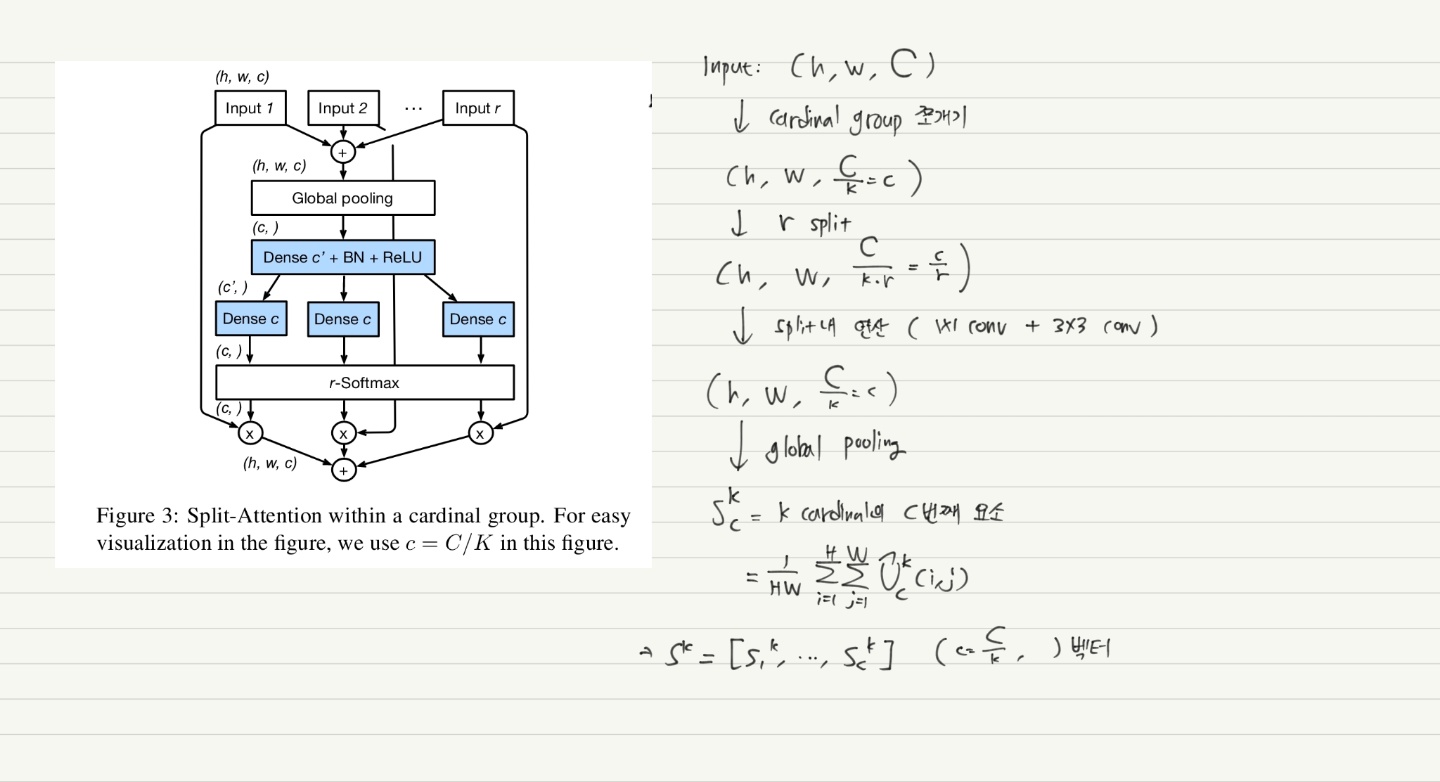 (h, w, c)
Input 1 Input 2 ... Input r
+
(h, w, c)
Global pooling
(c, )
Dense c' + BN + ReLU
(c', )
Dense c Dense c Dense c
(c, )
r-Softmax
(c, )
x x x
(h, w, c)
+
Figure 3: Split-Attention within a cardinal group. For easy
visualization in the figure, we use c = C/K in this figure.
Input: (h, w, C)
↓ cardinal group 쪼개기
(h, w, C/k = c)
↓ r split
(h, w, C/k·r = c/r)
↓ split내 연산 ( 1x1 conv + 3x3 conv )
(h, w, C/k = c)
↓ global pooling
S_c^k = k cardinal의 c번째 요소
= 1/HW Σ_{i=1}^{H} Σ_{j=1}^{W} Û_c^k (i,j)
→ S^k = [S_1^k, ..., S_c^k] (c = C/k, ) 벡터